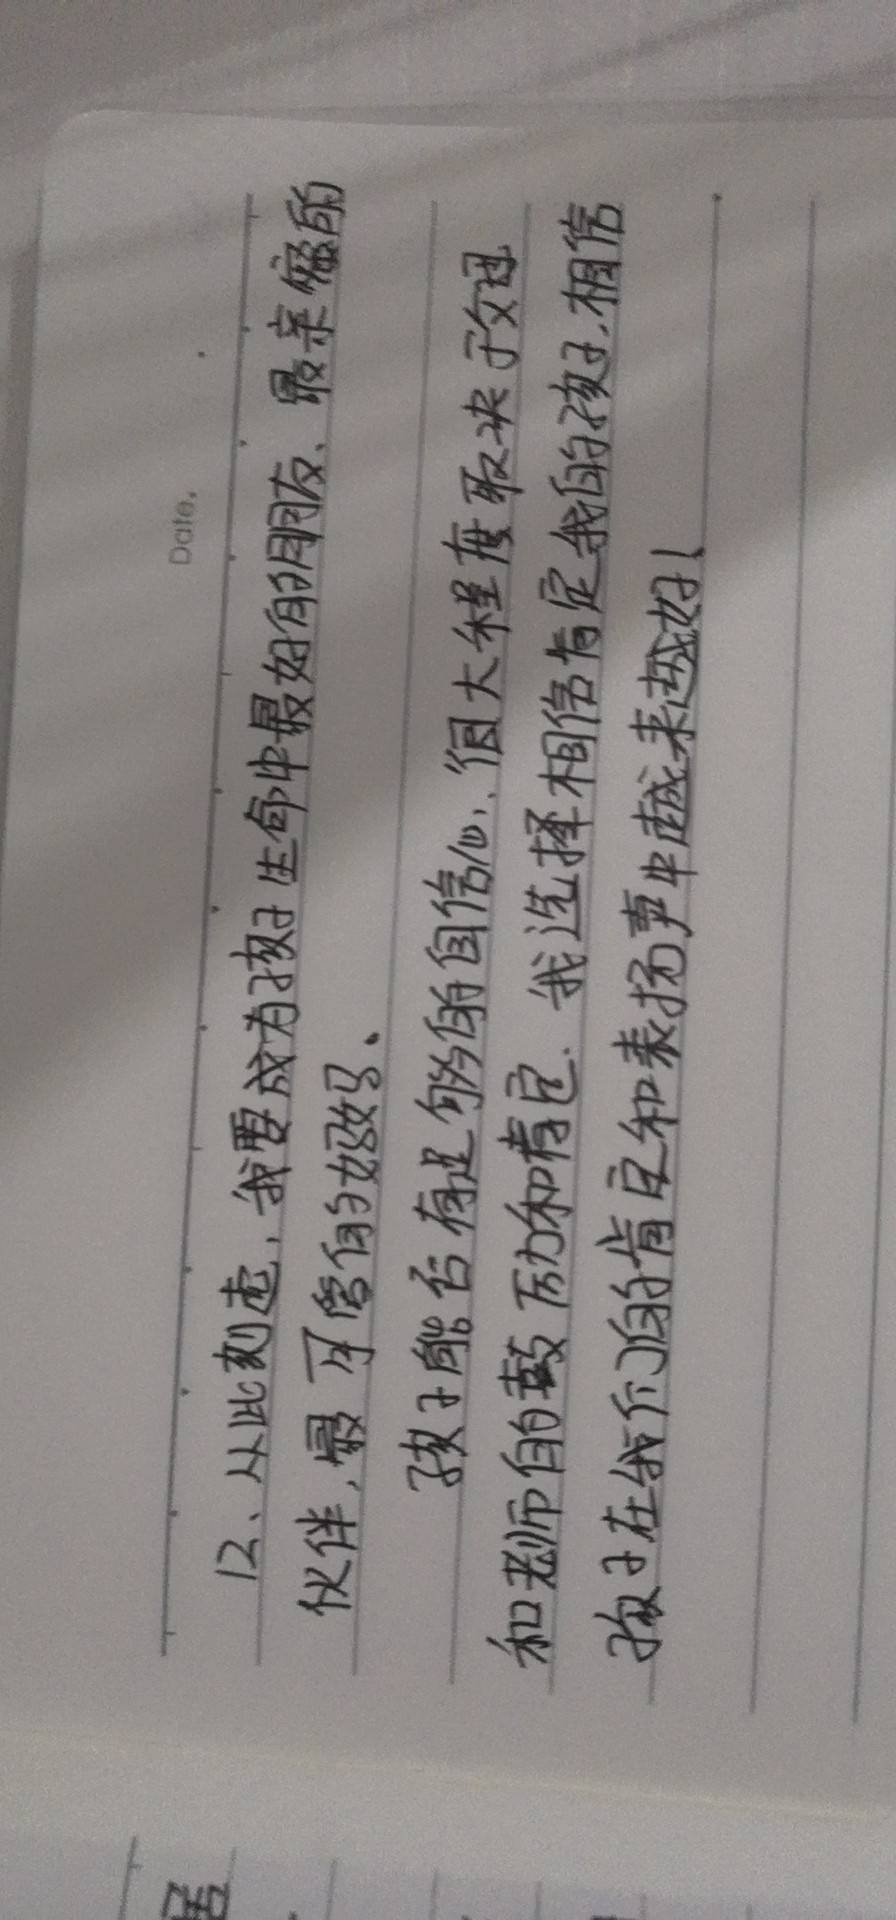 Date.
12、从此刻走，我要成为孩子生命中最好的朋友、最亲密的
伙伴，最可信的妈妈。
孩子能否有足够的自信心、很大程度取决于父母
和老师的鼓励和肯定．我选择相信肯定我的孩子，相信
孩子在我们的肯定和表扬声中越来越好！